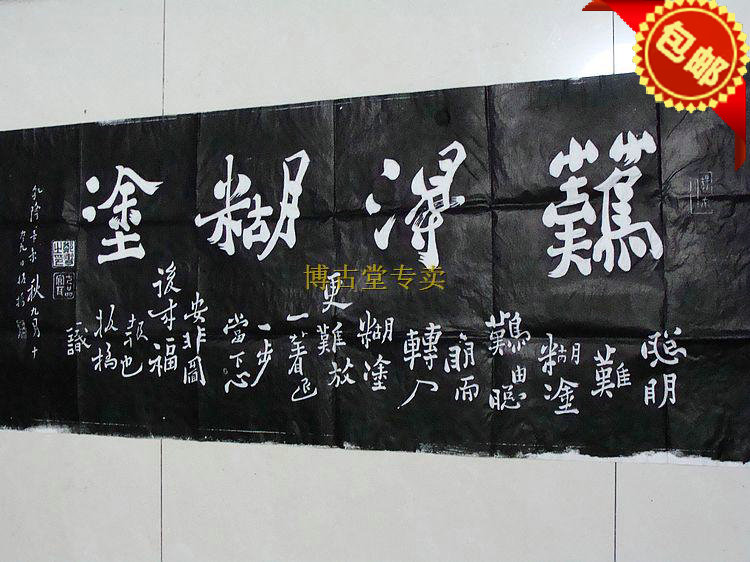 包邮
難得糊塗
聰明
難
糊塗
難由聰
明而
轉入
糊塗
更難放
一著退
一步
當下心
安非圖
後來福
報也
板橋
識
乾隆辛未秋九月十
九日板橋
博古堂专卖